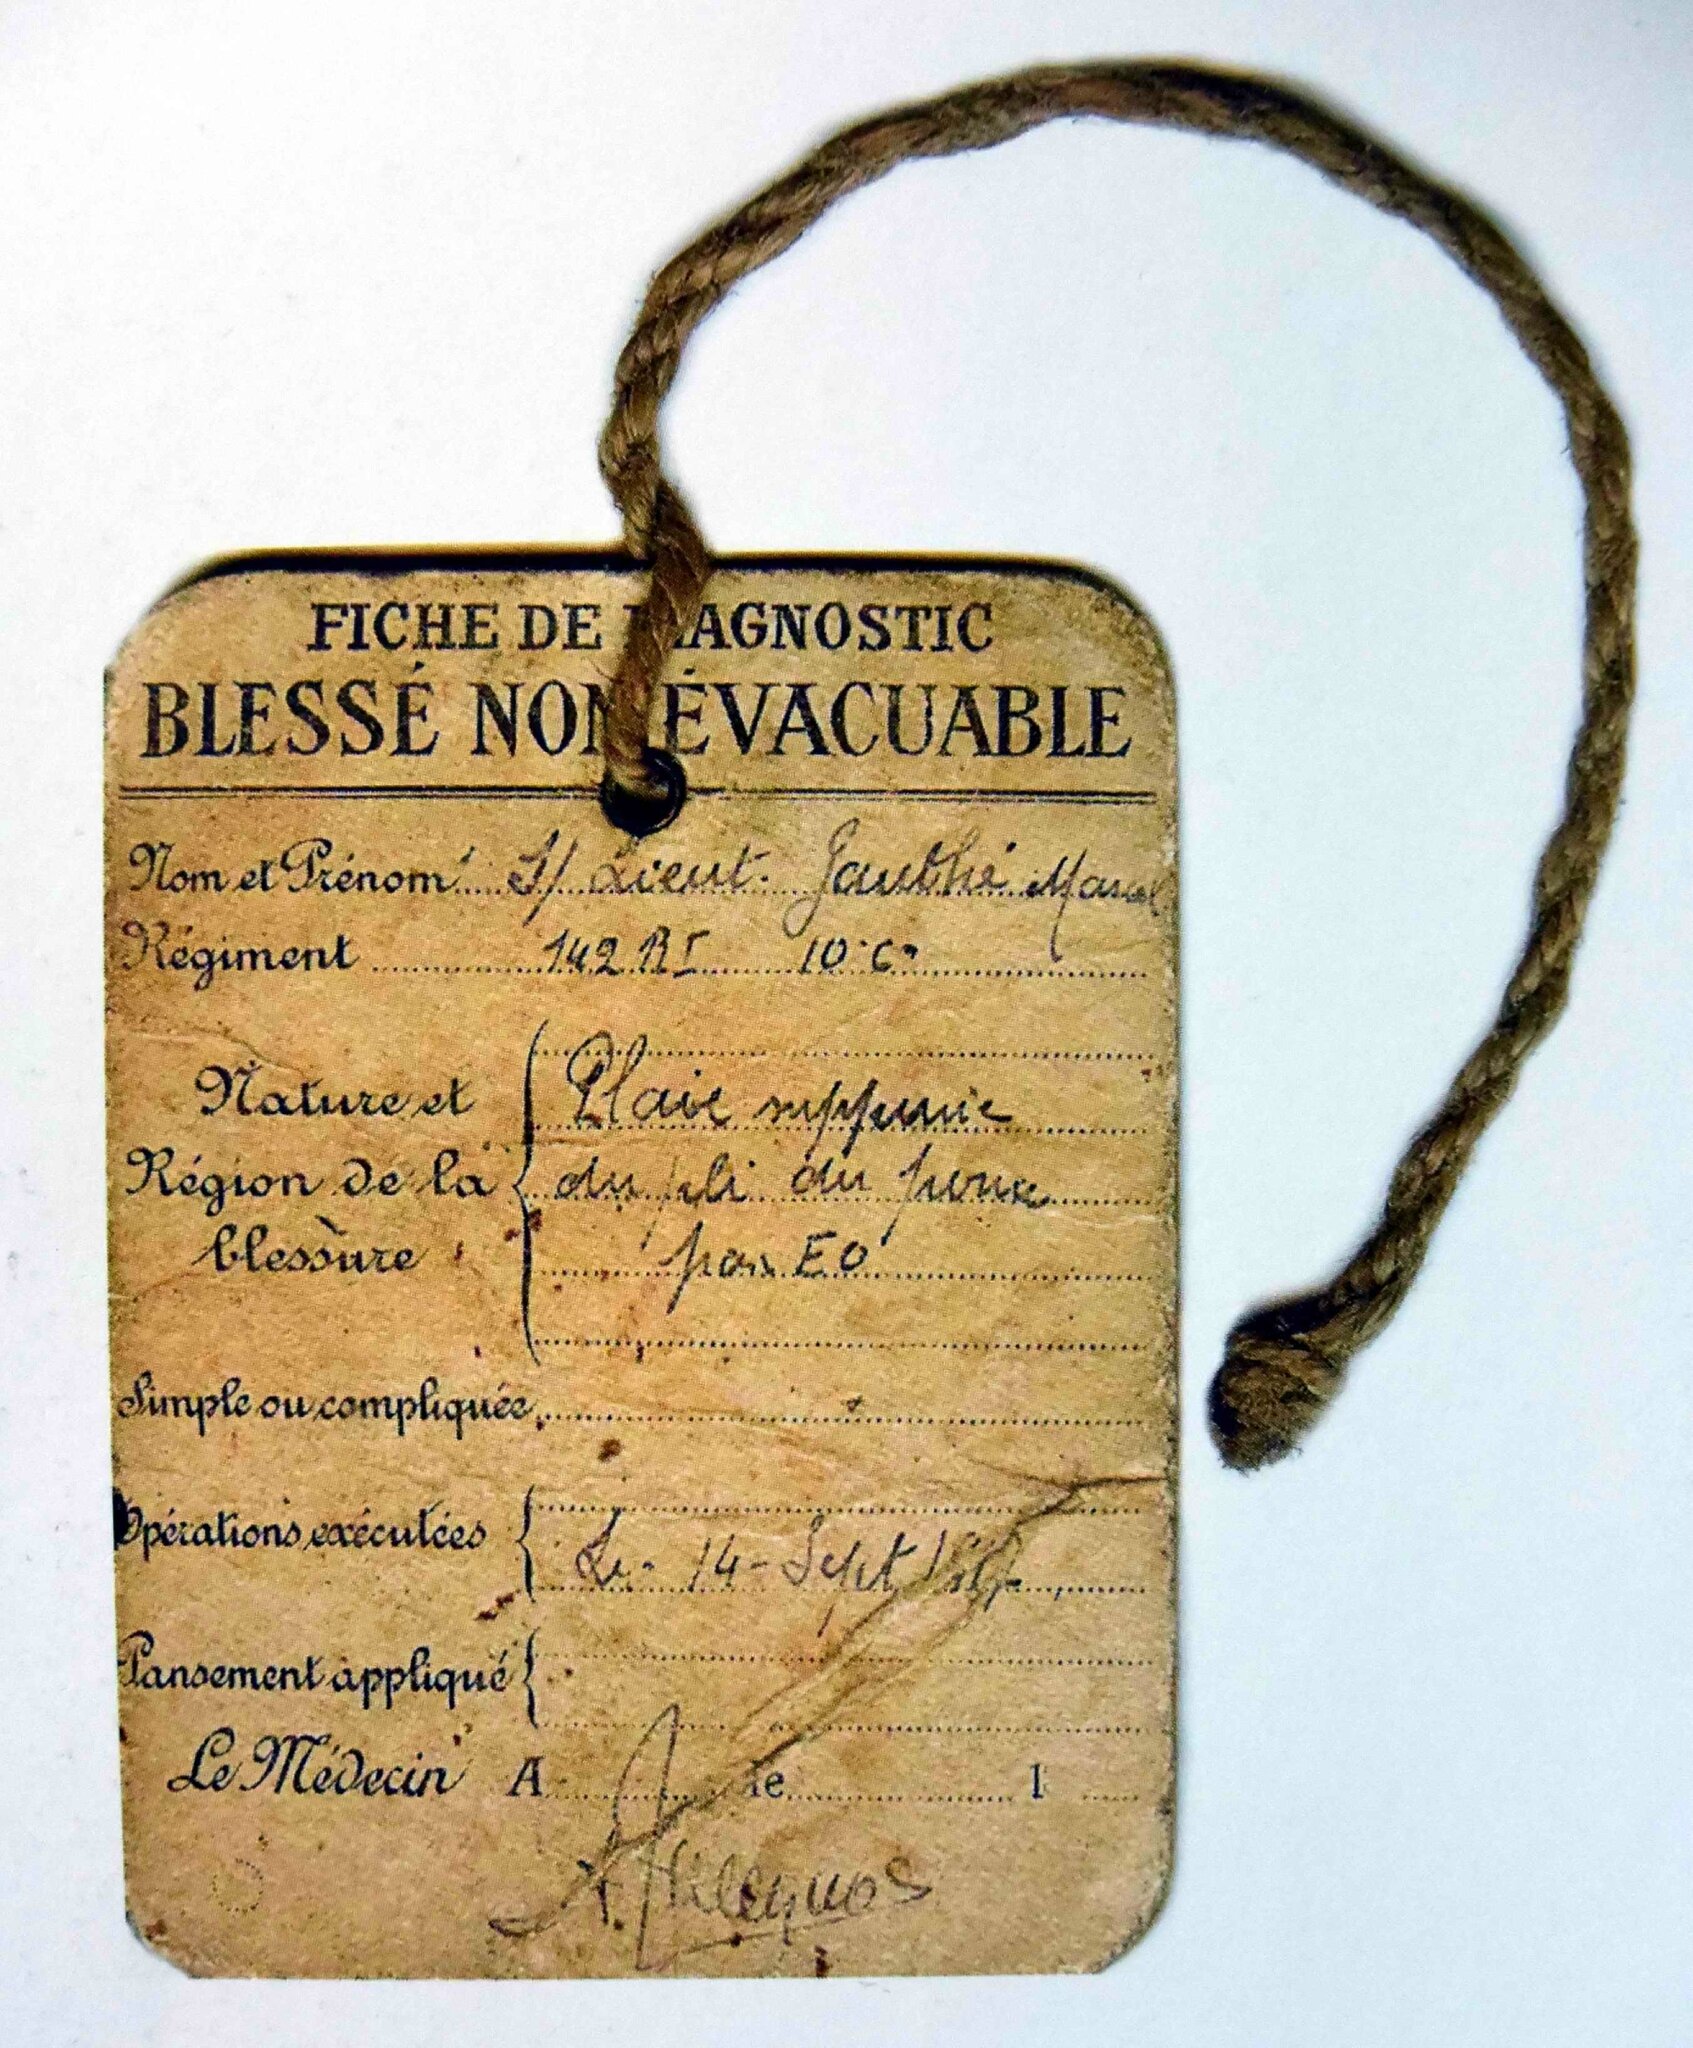 FICHE DE DIAGNOSTIC
BLESSÉ NON ÉVACUABLE
Nom et Prénom S/ Lieut. Gauthé Marcel
Régiment 142 RI 10e Cie
Nature et
Région de la
blessure
Plaie suppurée
du pli du pouce
par EO
Simple ou compliquée
Opérations exécutées Le - 14 - Sept
Pansement appliqué
Le Médecin A le 1